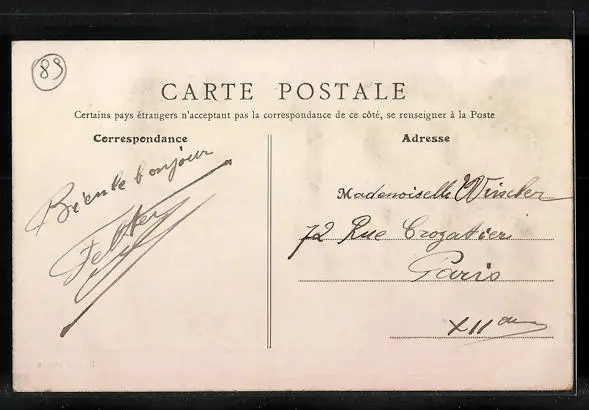 89
CARTE POSTALE
Certains pays étrangers n'acceptant pas la correspondance de ce côté, se renseigner à la Poste
Correspondance
Adresse
bonjour
Madenoiselle
72 Rue Crozatier
Paris
XII